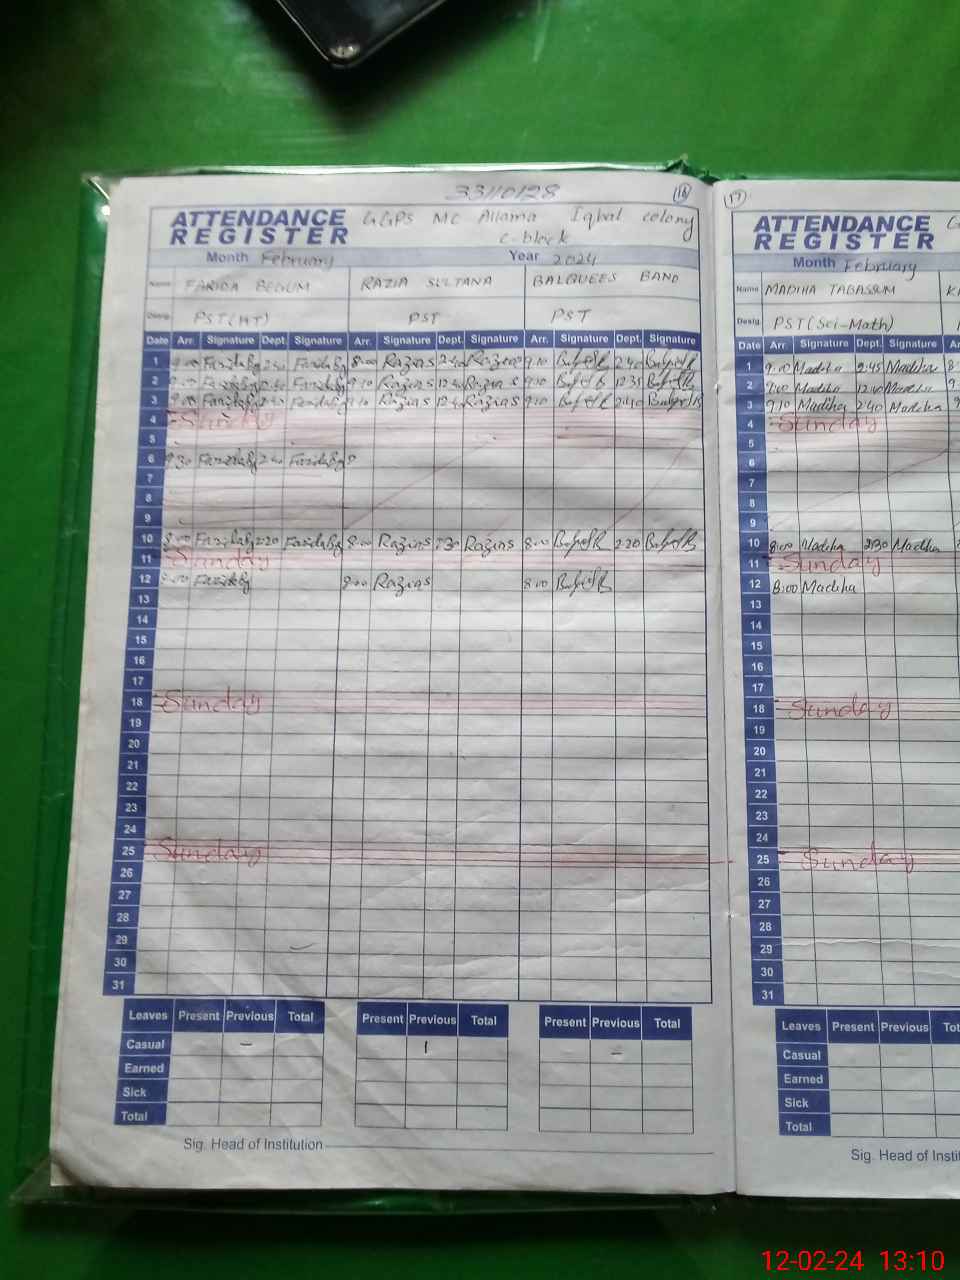 33110128
16
ATTENDANCE REGISTER GGPS MC Allama Iqbal colony
C-block
Month February Year 2024
Name FARIDA BEGUM RAZIA SULTANA BALQUEES BANO
Desig. PST(HT) PST PST
Date Arr. Signature Dept. Signature Arr. Signature Dept. Signature Arr. Signature Dept. Signature
1 9:00 2:40 8:00 Razias 2:40 Razias 9:10 2:40
2 9:00 9:10 Razias 12:40 Razias 9:10 12:35
3 9:00 9:10 Razias Razias 9:10 2:40
4 Sunday
5
6 9:30 2:40
7
8
9
10 8:00 2:20 8:00 Razias Razias 8:00 2:20
11 Sunday
12 8:00 8:00 Razias 8:00
13
14
15
16
17
18 Sunday
19
20
21
22
23
24
25 Sunday
26
27
28
29
30
31
Leaves Present Previous Total Present Previous Total Present Previous Total
Casual – 1 –
Earned
Sick
Total
Sig. Head of Institution
17
ATTENDANCE REGISTER G
Month February
Name MADIHA TABASSUM
Desig. PST(Sci-Math)
Date Arr. Signature Dept. Signature
1 9:00 Madiha 2:45 Madiha
2 9:00 Madiha 12:40 Madiha
3 9:10 Madiha 2:40 Madiha
4 Sunday
5
6
7
8
9
10 8:00 Madiha 2:30 Madiha
11 Sunday
12 8:00 Madiha
13
14
15
16
17
18 Sunday
19
20
21
22
23
24
25 Sunday
26
27
28
29
30
31
Leaves Present Previous Tot
Casual
Earned
Sick
Total
Sig. Head of Insti
12-02-24 13:10